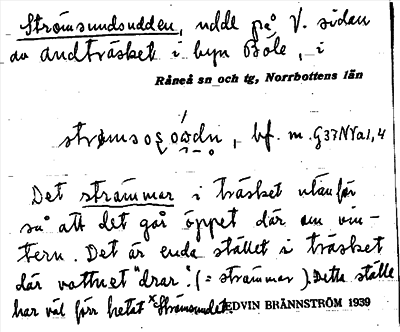 Strömsundsudden, udde på V. sidan
av Andträsket i byn Böle, i
Råneå sn och tg, Norrbottens län
bf. m. G37NYa1,4
Det strömmar i träsket utanför
så att det går öppet där om vin-
tern. Det är enda stället i träsket
där vattnet "drar". (= strömmar). Detta ställe
har väl förr hetat *Strömsundet.
EDVIN BRÄNNSTRÖM 1939